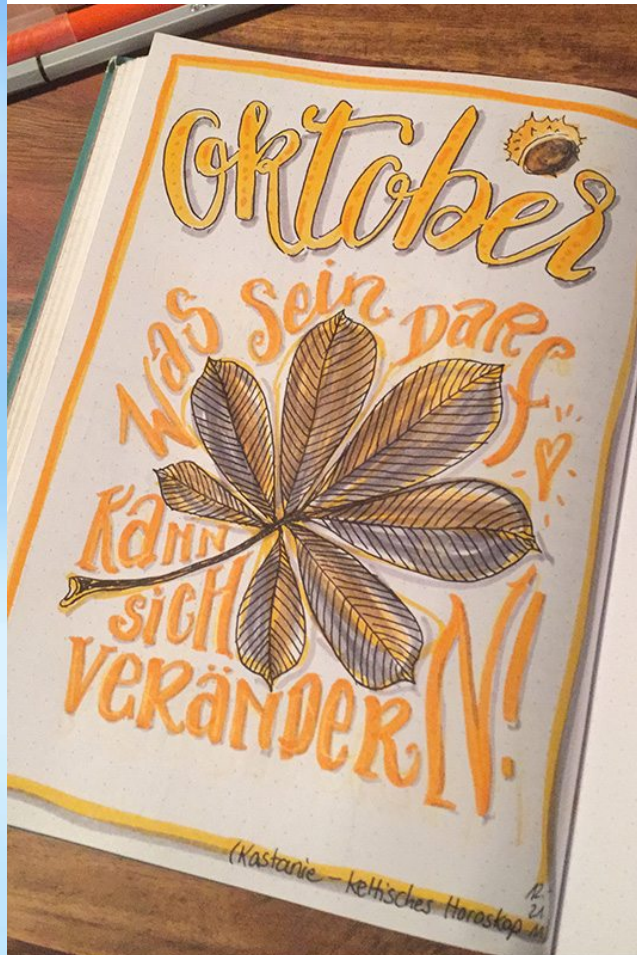 Oktober
Was sein Darf
kann
sich
verändern!
(Kastanie – keltisches Horoskop
12.
21.